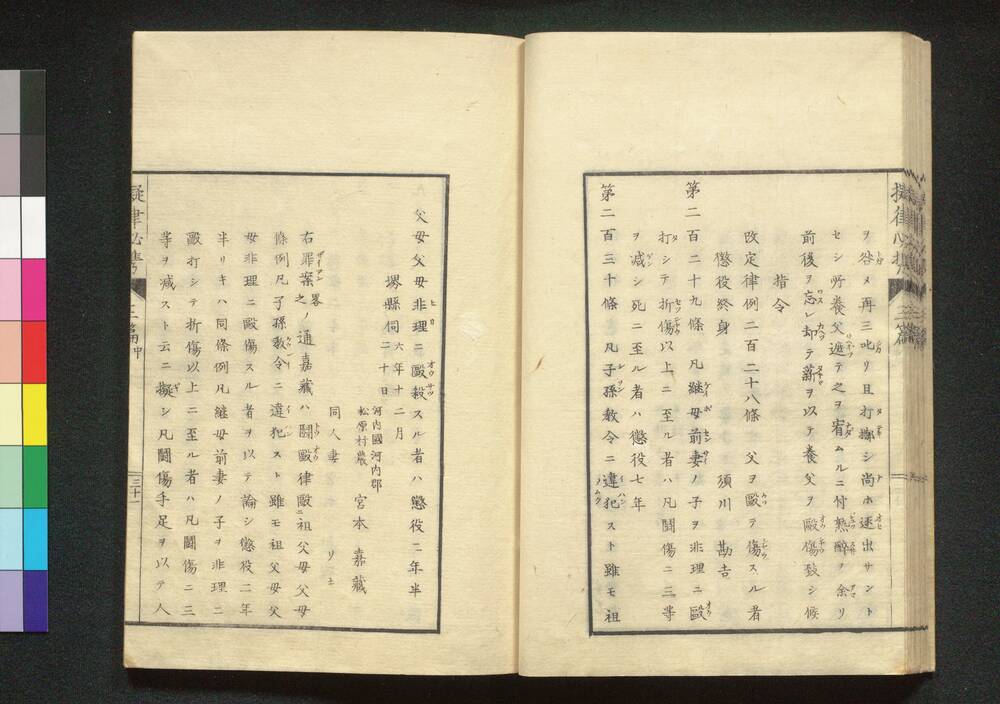 ヲ咎メ再三叱リ且打擲シ尚ホ逐出サント
セシ所養父遮テ之ヲ宥ムルニ付熟醉ノ余リ
前後ヲ忘レ却テ薪ヲ以テ養父ヲ毆傷致シ候
指令
須川勘吉
改定律例二百二十八條 父ヲ毆テ傷スル者
懲役終身
第二百二十九條 凡継母前妻ノ子ヲ非理ニ毆
打シテ折傷以上ニ至ル者ハ凡鬪傷ニ三等
ヲ減シ死ニ至ル者ハ懲役七年
第二百三十條 凡子孫教令ニ違犯スト雖モ祖
父母父母非理ニ毆殺スル者ハ懲役二年半
堺縣伺 六年十二月二十日
河内國河内郡松原村農 宮本嘉藏
同人妻 リ
右罪案畧之ノ通嘉藏ハ鬪毆律毆祖父母父母
條例凡子孫教令ニ違犯スト雖モ祖父母父
母非理ニ毆傷スル者ヲ以テ論シ懲役二年
半リキハ同條例凡継母前妻ノ子ヲ非理ニ
毆打シテ折傷以上ニ至ル者ハ凡鬪傷ニ三
等ヲ減スト云ニ擬シ凡鬪傷手足ヲ以テ人
擬律必携
三篇中
三十一